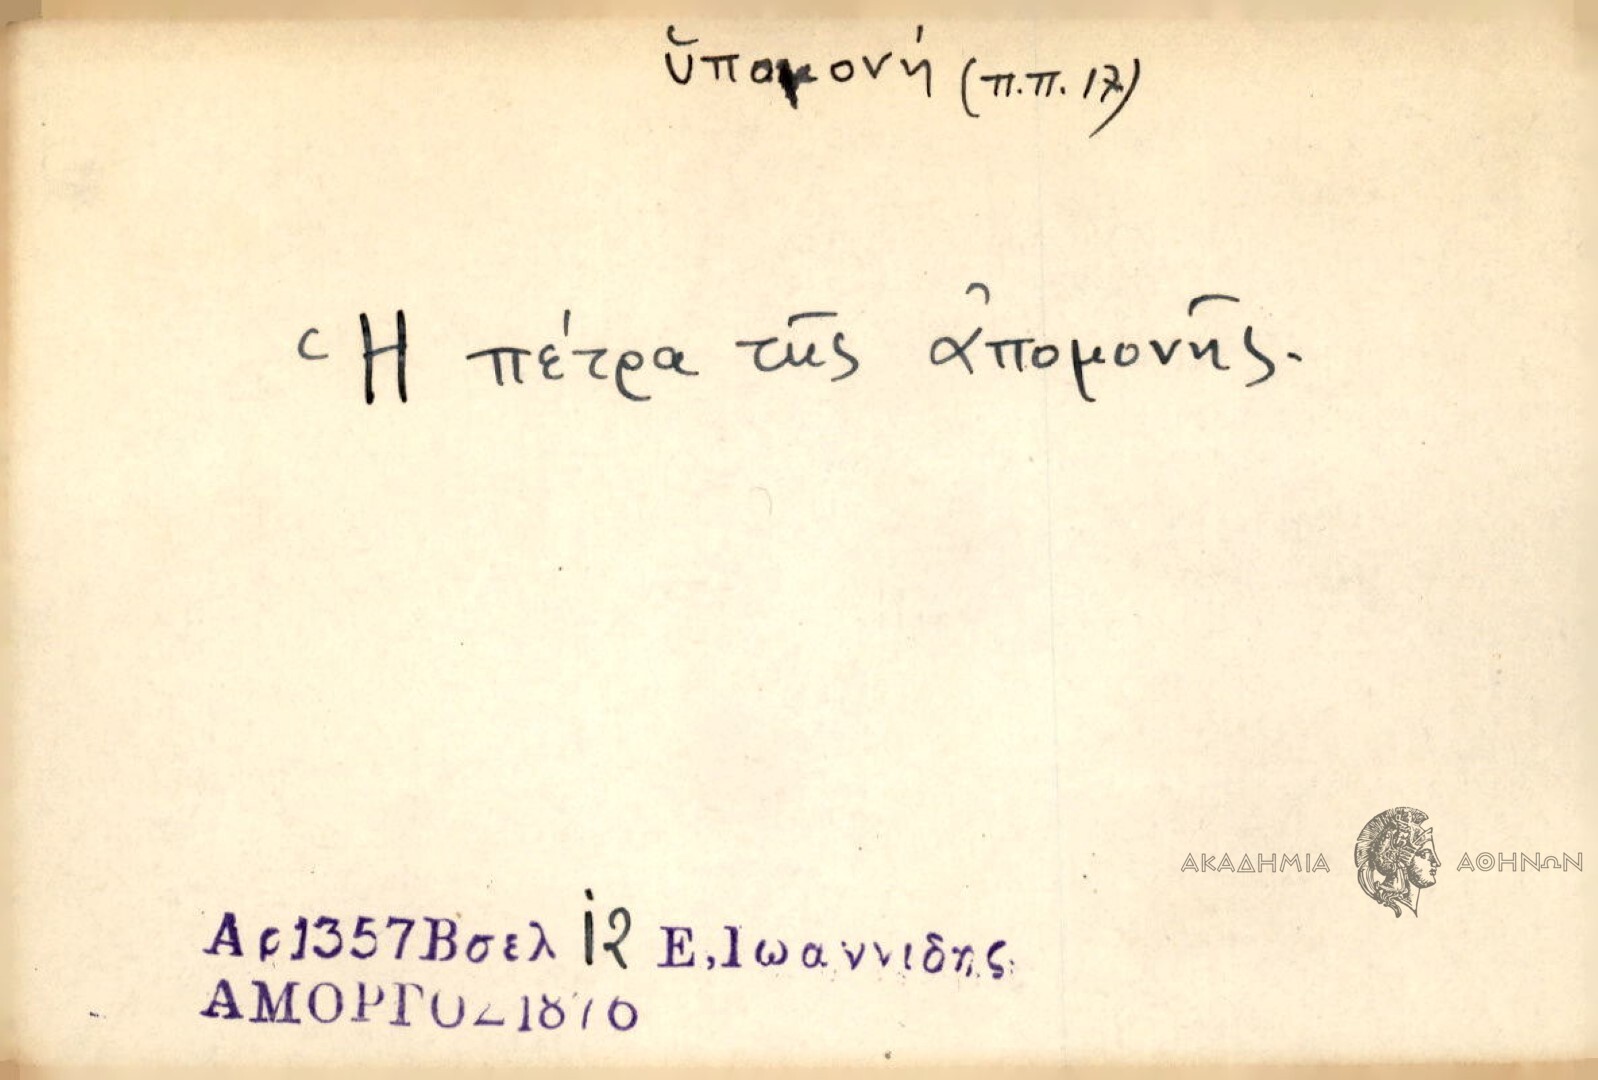 ὑπομονή (π.π. 17)
Ἡ πέτρα τῆς ἀπομονῆς.
ΑΚΑΔΗΜΙΑ ΑΘΗΝΩΝ
Αρ 1357 Β σελ 12 Ε, Ιωαννιδης.
ΑΜΟΡΓΟΣ 1876